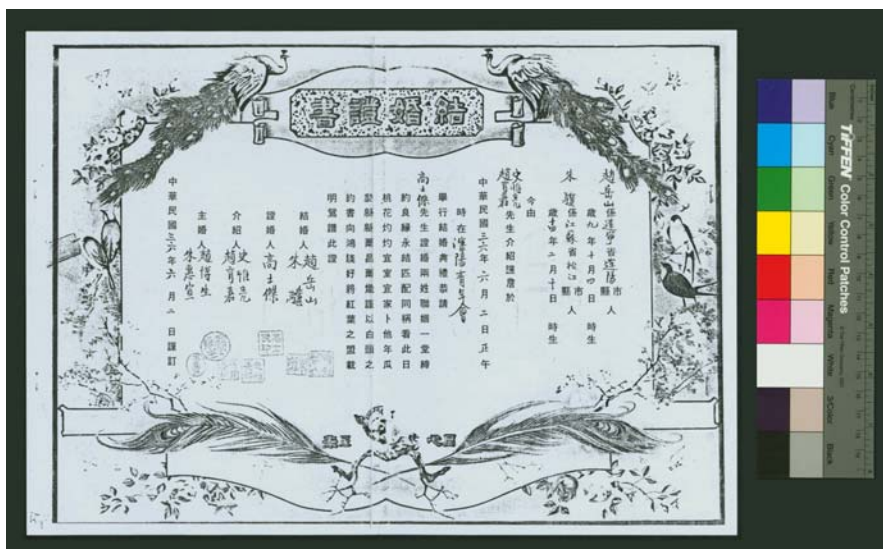 結婚證書
趙岳山係遼寧省遼陽市縣人
歲九年十月四日 時生
朱 係江蘇省松江市縣人
歲十四年二月十日 時生
今由
史惟亮
趙育嘉
先生介紹謹詹於
中華民國三六年六月二日正午
時在瀋陽青年會
舉行結婚典禮恭請
高士傑先生證婚兩姓聯姻一堂締
約良緣永結匹配同稱看此日
桃花灼灼宜室宜家卜他年瓜
瓞緜緜爾昌爾熾謹以白頭之
約書向鴻箋好將紅葉之盟載
明鴛譜此證
結婚人 趙岳山
朱
證婚人 高士傑
介紹人 史惟亮
趙育嘉
主婚人 趙得生
朱惠寅
中華民國三六年六月二日謹訂
TIFFEN Color Control Patches
Blue
Cyan
Green
Yellow
Red
Magenta
White
3/Color
Black